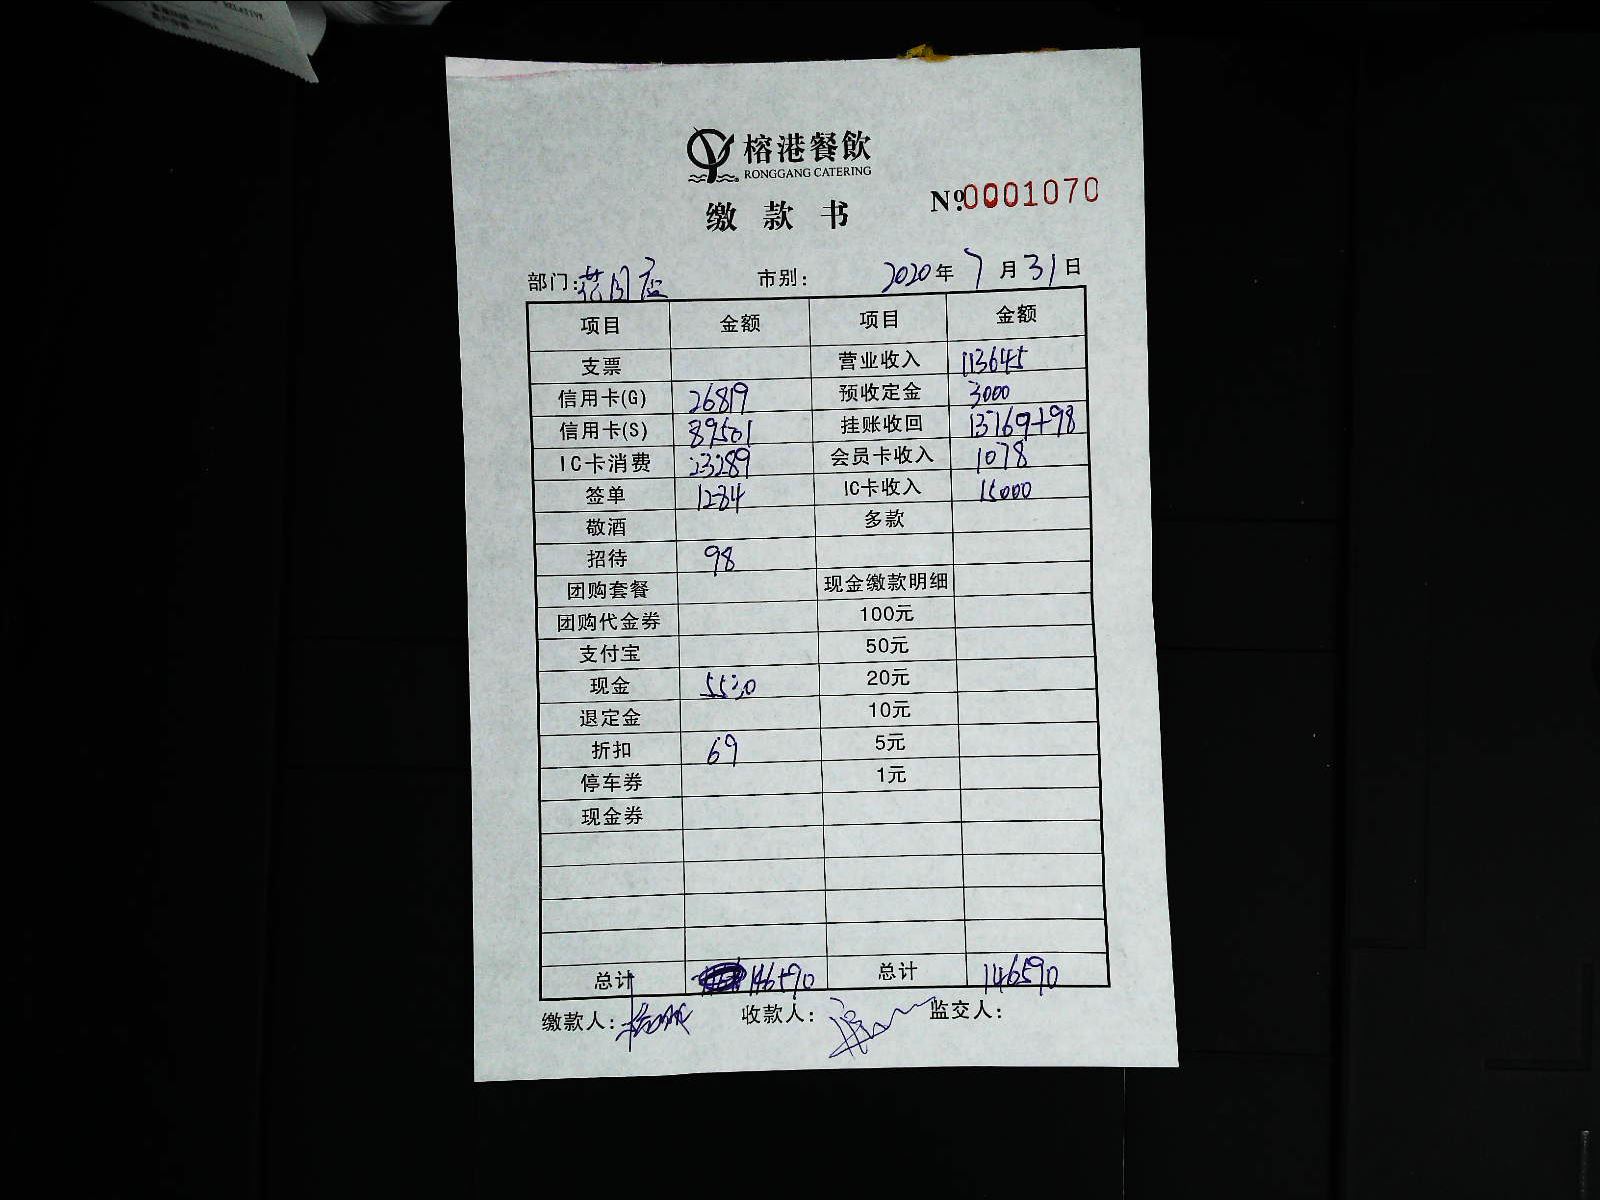 榕港餐飲
RONGGANG CATERING
缴款书
Nº 0001070
部门: 市别: 2020年7月31日
项目 金额 项目 金额
支票 营业收入 113645
信用卡(G) 26819 预收定金 3000
信用卡(S) 89501 挂账收回 13769+98
IC卡消费 23289 会员卡收入 1078
签单 1284 IC卡收入 15000
敬酒 多款
招待 98
团购套餐 现金缴款明细
团购代金券 100元
支付宝 50元
现金 5530 20元
退定金 10元
折扣 69 5元
停车券 1元
现金券
总计 146590 总计 146590
缴款人: 收款人: 监交人: